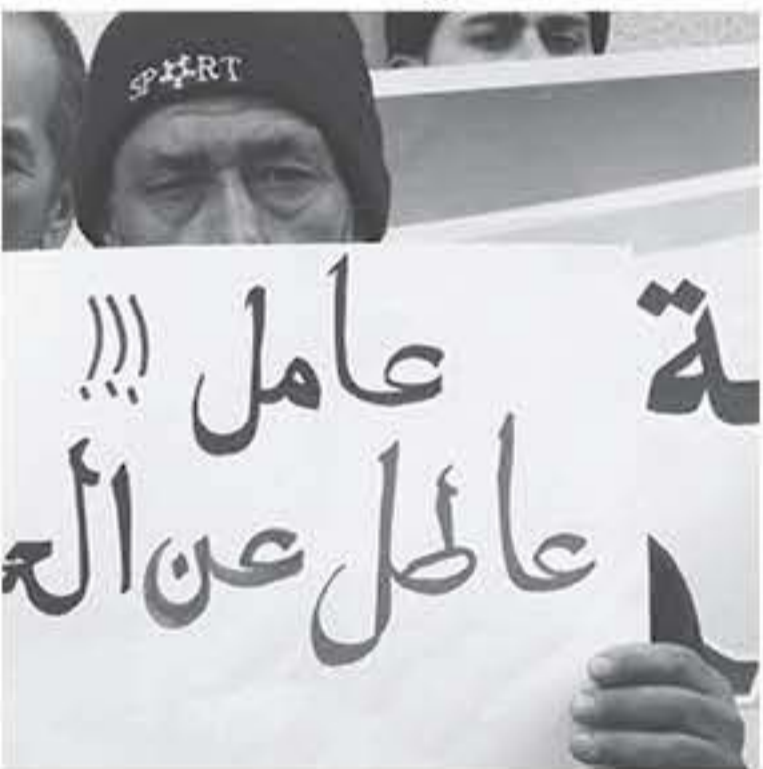 SPORT
عامل !!!
عاطل عن الع